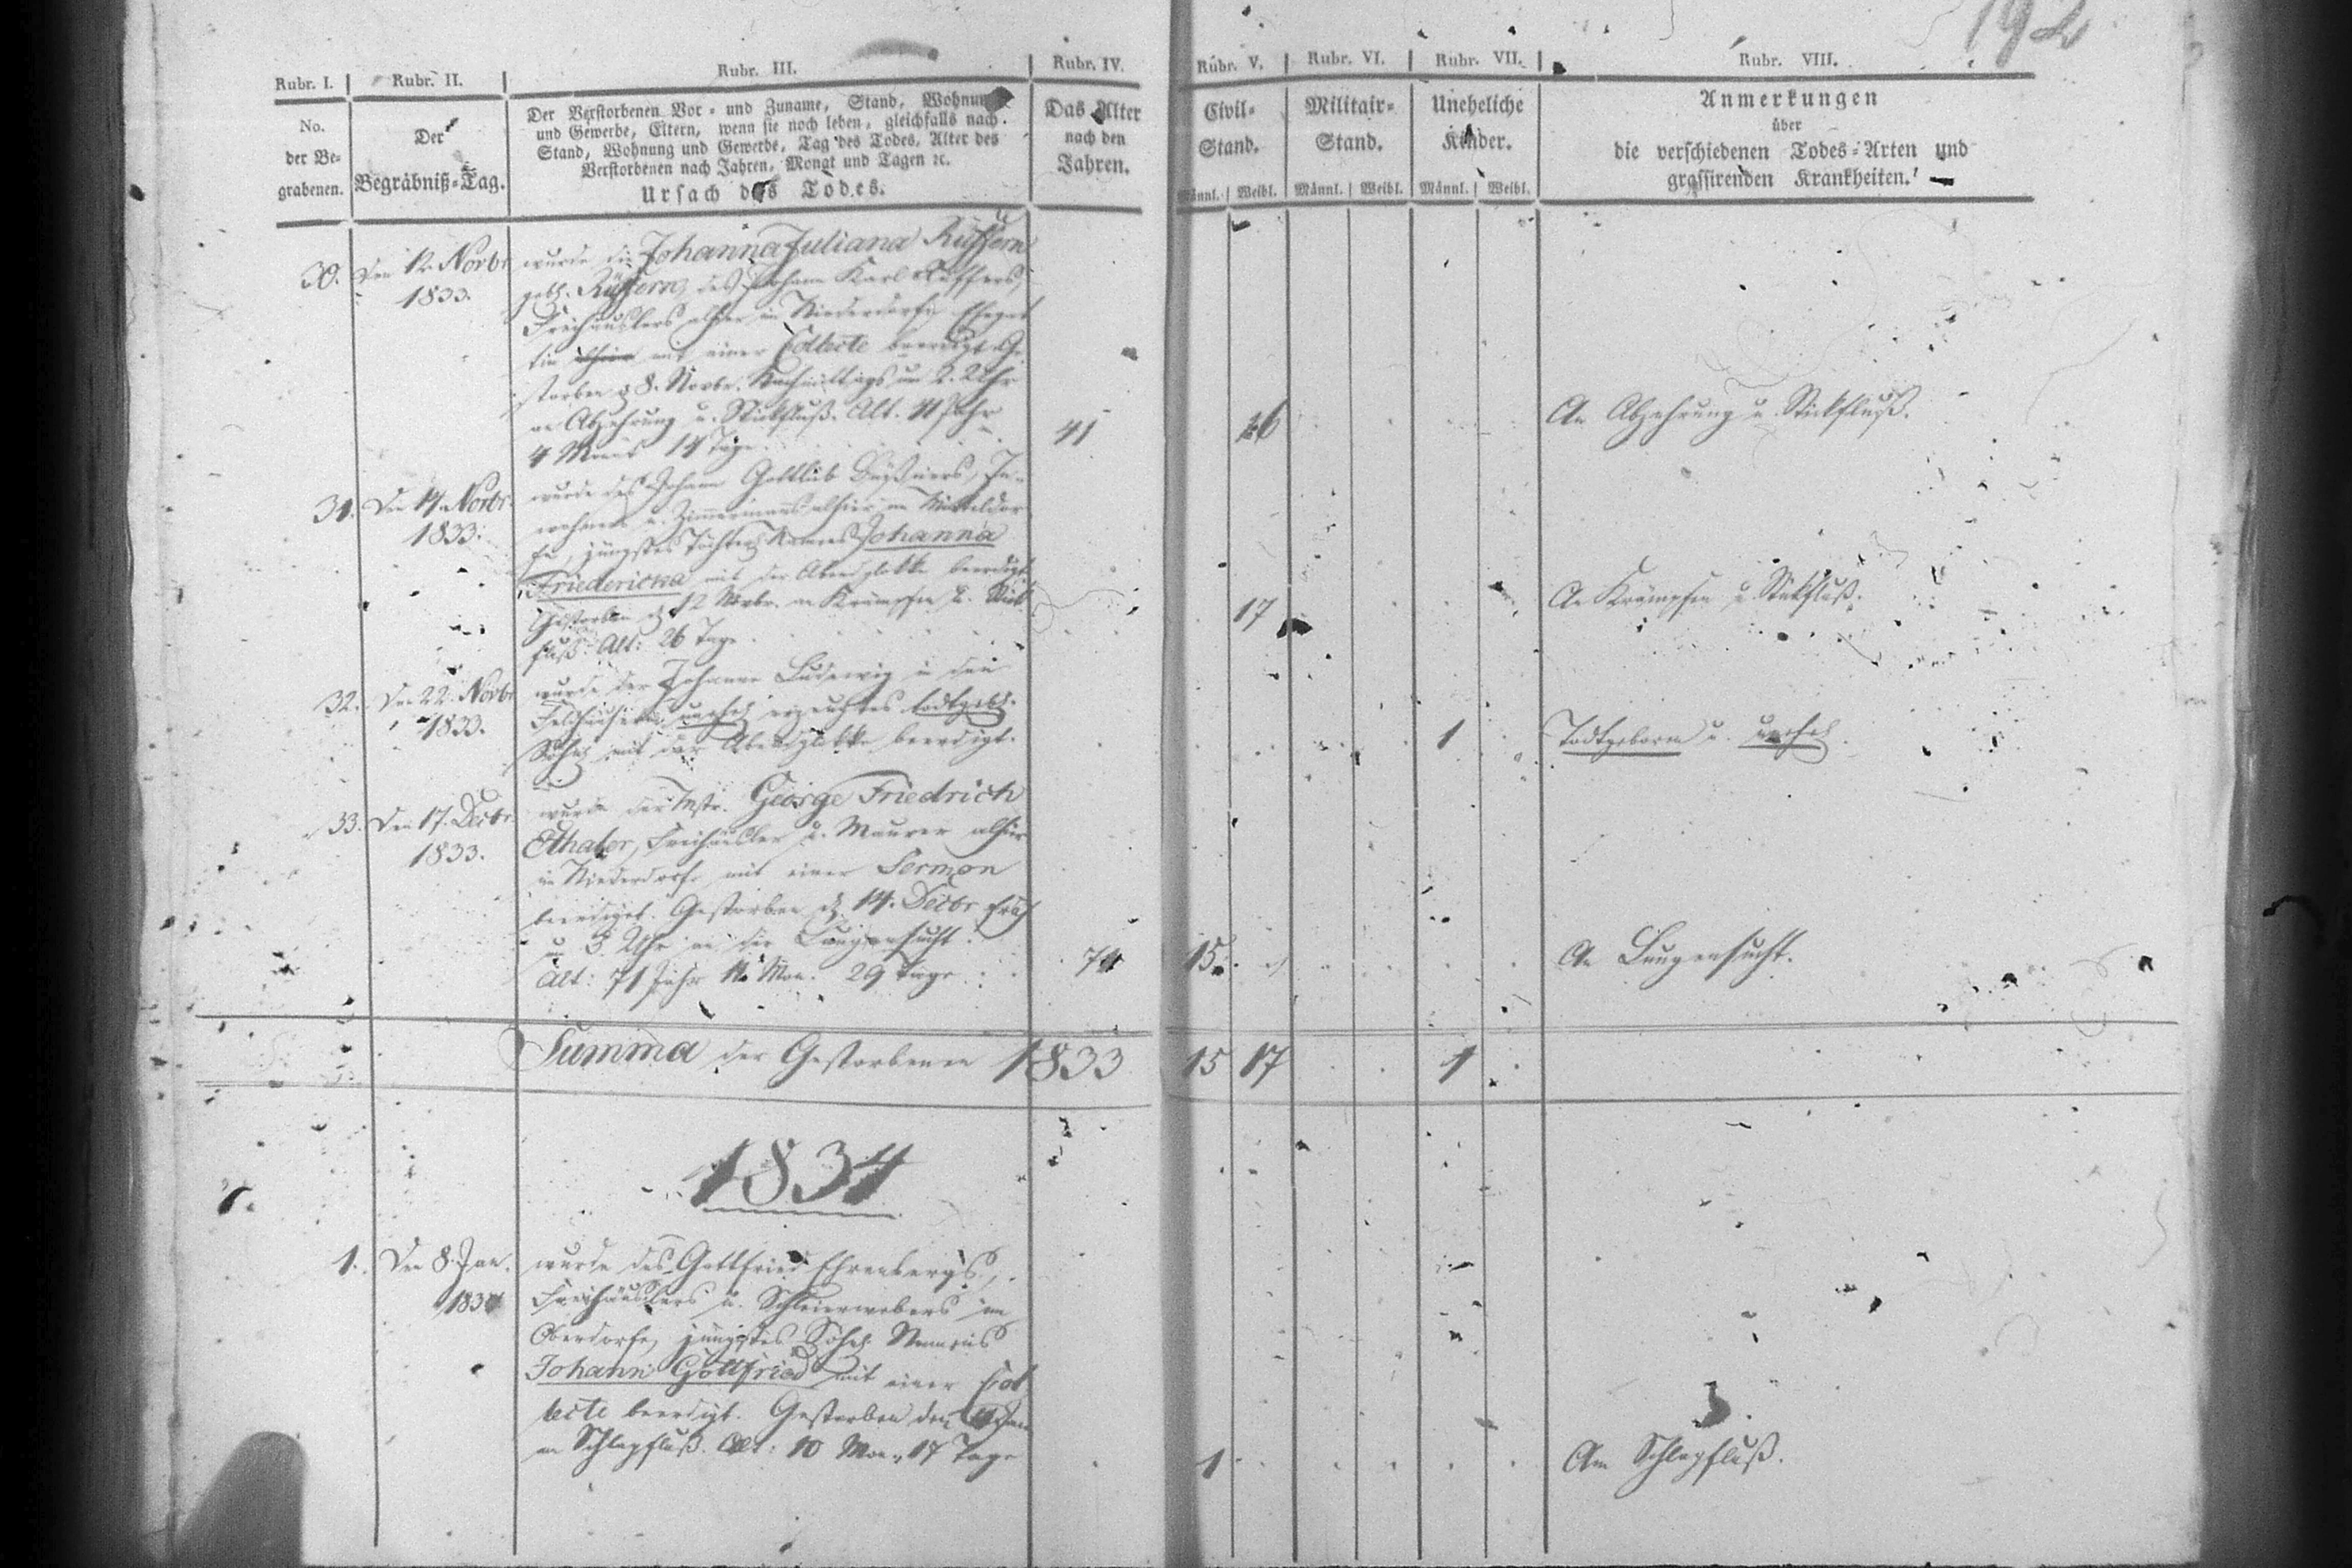 192
Rubr. I. Rubr. II. Rubr. III. Rubr. IV. Rubr. V. Rubr. VI. Rubr. VII. Rubr. VIII.
No.
der Be-
grabenen.
Der
Begräbniß-Tag.
Der Verstorbenen Vor- und Zuname, Stand, Wohnung
und Gewerbe, Eltern, wenn sie noch leben, gleichfalls nach
Stand, Wohnung und Gewerbe, Tag des Todes, Alter des
Verstorbenen nach Jahren, Monat und Tagen ꝛc.
Ursach des Todes.
Das Alter
nach den
Jahren.
Civil-
Stand.
Männl. Weibl.
Militair-
Stand.
Männl. Weibl.
Uneheliche
Kinder.
Männl. Weibl.
Anmerkungen
über
die verschiedenen Todes-Arten und
grassirenden Krankheiten.
30. Den 12. Novbr wurde die Johanna Juliana Rüffern
1833. gebh. Rüffern, des Johann Karl Rüffers,
Freihäuslers alhier in Niederdorfe Ehegat
tin mit einer Collecte beerdigt. Ge
storben d. 8. Novbr. Nachmittags um 2. Uhr
an Abzehrung u. Stickfluß. Alt. 41 Jahr
4 Mon. 14 Tage. 41 16 An Abzehrung u. Stickfluß.
31. Den 14. Novbr. wurde des Johann Gottlieb In-
1833. wohners u. Zimmermanns alhier im Mitteldor
fe, jüngstes Töchterch Namens Johanna
Friedericka mit der Abendglokke beerdigt
Gestorben d. 12 Novbr. an Krämpfen u. Stick
fluß. Alt: 26 Tage. 17 An Krämpfen u. Stickfluß.
32. Den 22. Novbr wurde der Johanne Ludewig in den
1833. Feldhäusern unehel erzeugtes todtgeb.
Söhnch mit der Abendglokke beerdigt. 1 Todtgeboren u. unehel.
33. Den 17. Decbr. wurde der Mstr. George Friedrich
1833. Ethaler, Freihäusler u. Maurer alhier
in Niederdorfe mit einer Sermon
beerdiget. Gestorben d. 14. Decbr früh
um 3 Uhr an der Lungensucht.
Alt: 71 Jahr Mon. 29 Tage. 71 15. An Lungensucht.
Summa der Gestorbenen 1833 15 17 1
1834
1. Den 8. Jan. wurde des Gottfried Ehrenbergs,
1834 Freihäuslers u. Schleierwebers im
Oberdorfe, jüngstes Söhnch. Namens
Johann Gottfried mit einer Col
lecte beerdigt. Gestorben den Jan
an Schlagfluß. Alt: 10 Mon. 17 Tage 1 Am Schlagfluß.